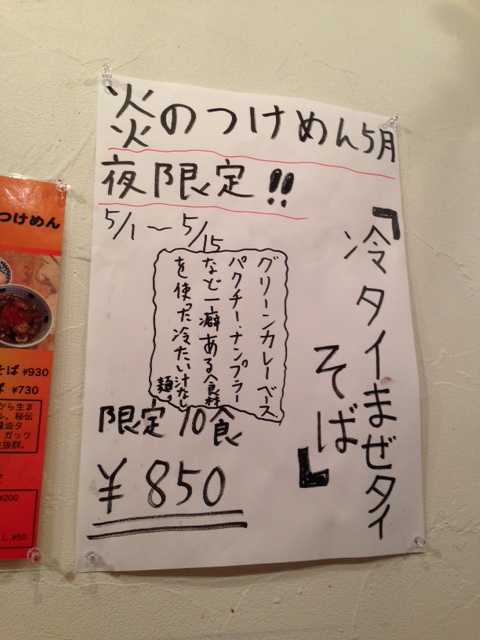 炎のつけめん5月
夜限定!!
5/1〜5/15
『冷タイまぜタイ
そば』
グリーンカレーベース
パクチー、ナンプラー
など一癖ある食材
を使った冷たい汁なし
麺。
限定10食
¥850
つけめん
そば ¥930
ば ¥730
から生ま
ル。秘伝
醤油タ
ガッツ
抜群。
¥200
L ¥50